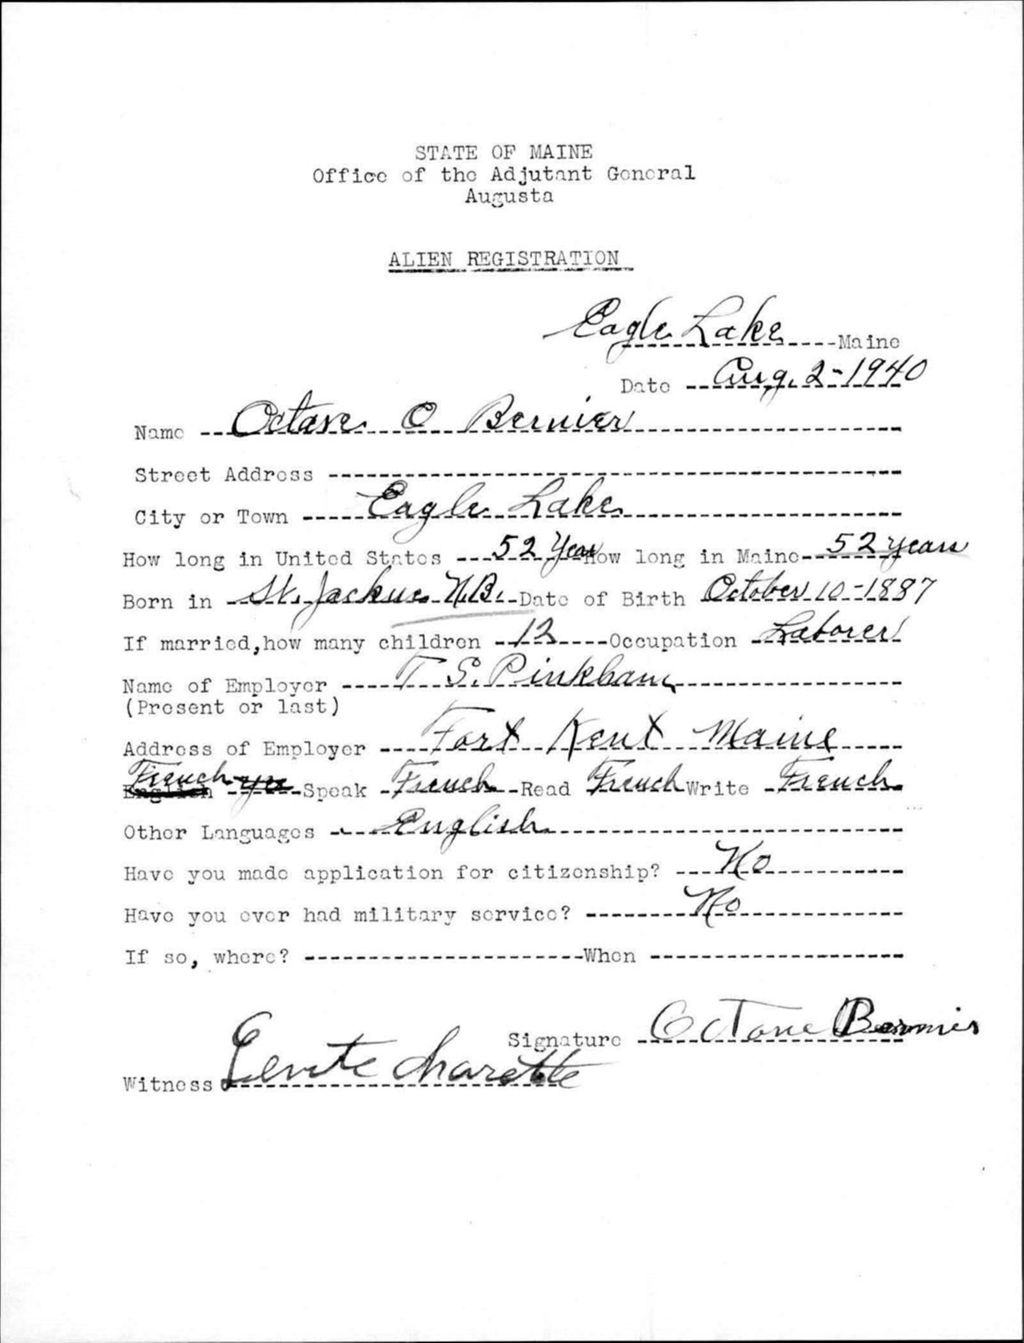 STATE OF MAINE
Office of the Adjutant General
Augusta
ALIEN REGISTRATION
Eagle Lake Maine
Date Aug. 2-1940
Name Octave O Bernier
Street Address
City or Town Eagle Lake
How long in United States 52 Years How long in Maine 52 years
Born in St. Jackues N.B. Date of Birth October 10-1887
If married, how many children 12 Occupation Laborer
Name of Employer T S. Pinkham
(Present or last)
Address of Employer Fort Kent Maine
French
English yes Speak French Read French Write French
Other Languages English
Have you made application for citizenship? No
Have you ever had military service? No
If so, where? When
Signature Octave Bernier
Witness Levite Charette